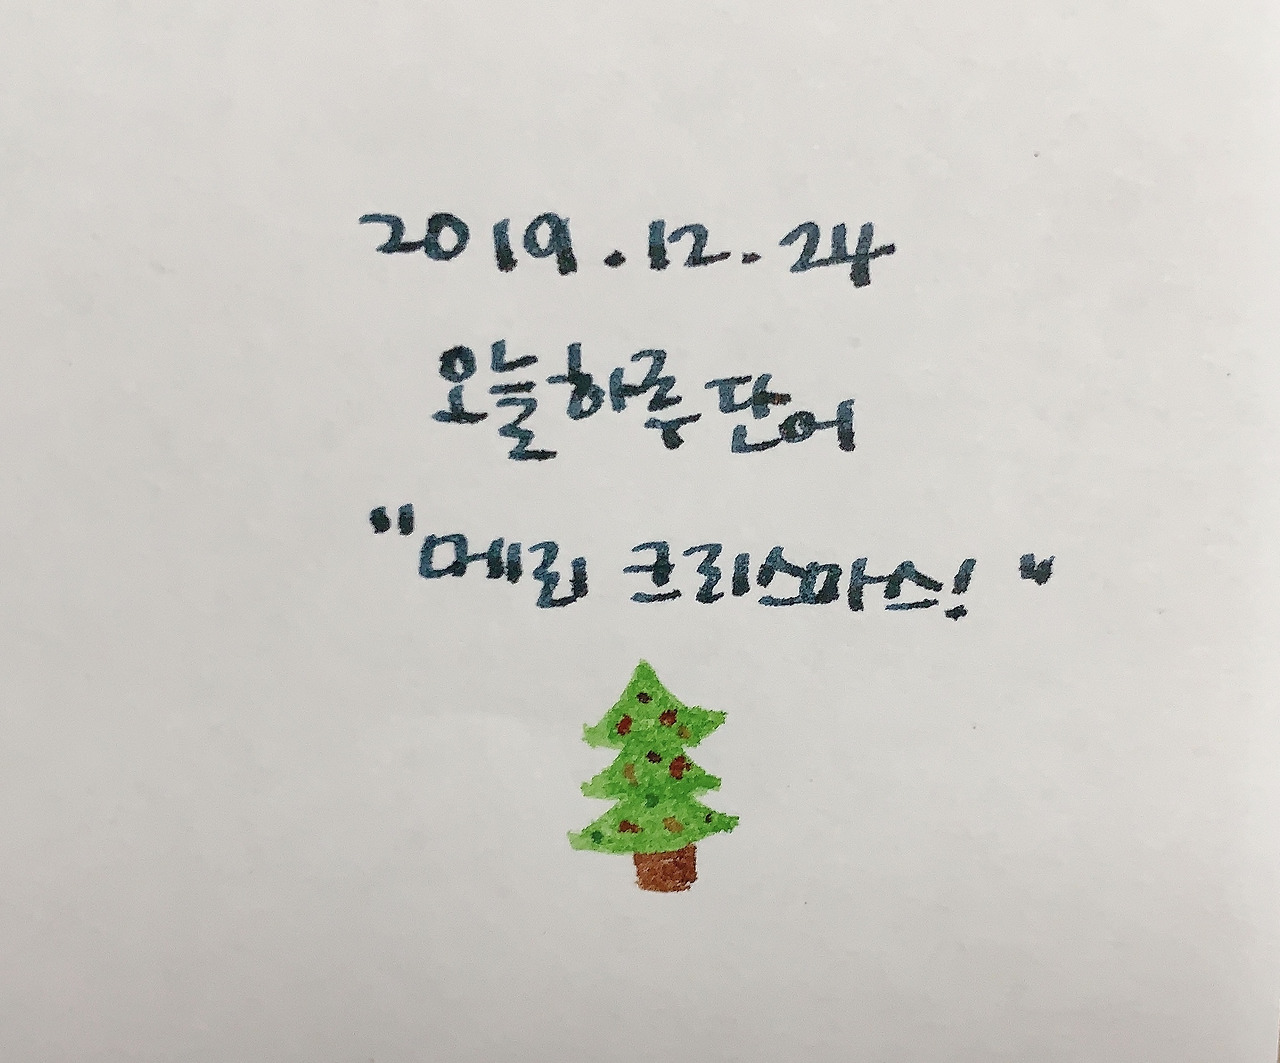 2019.12.24
오늘하루 단어
"메리 크리스마스!"